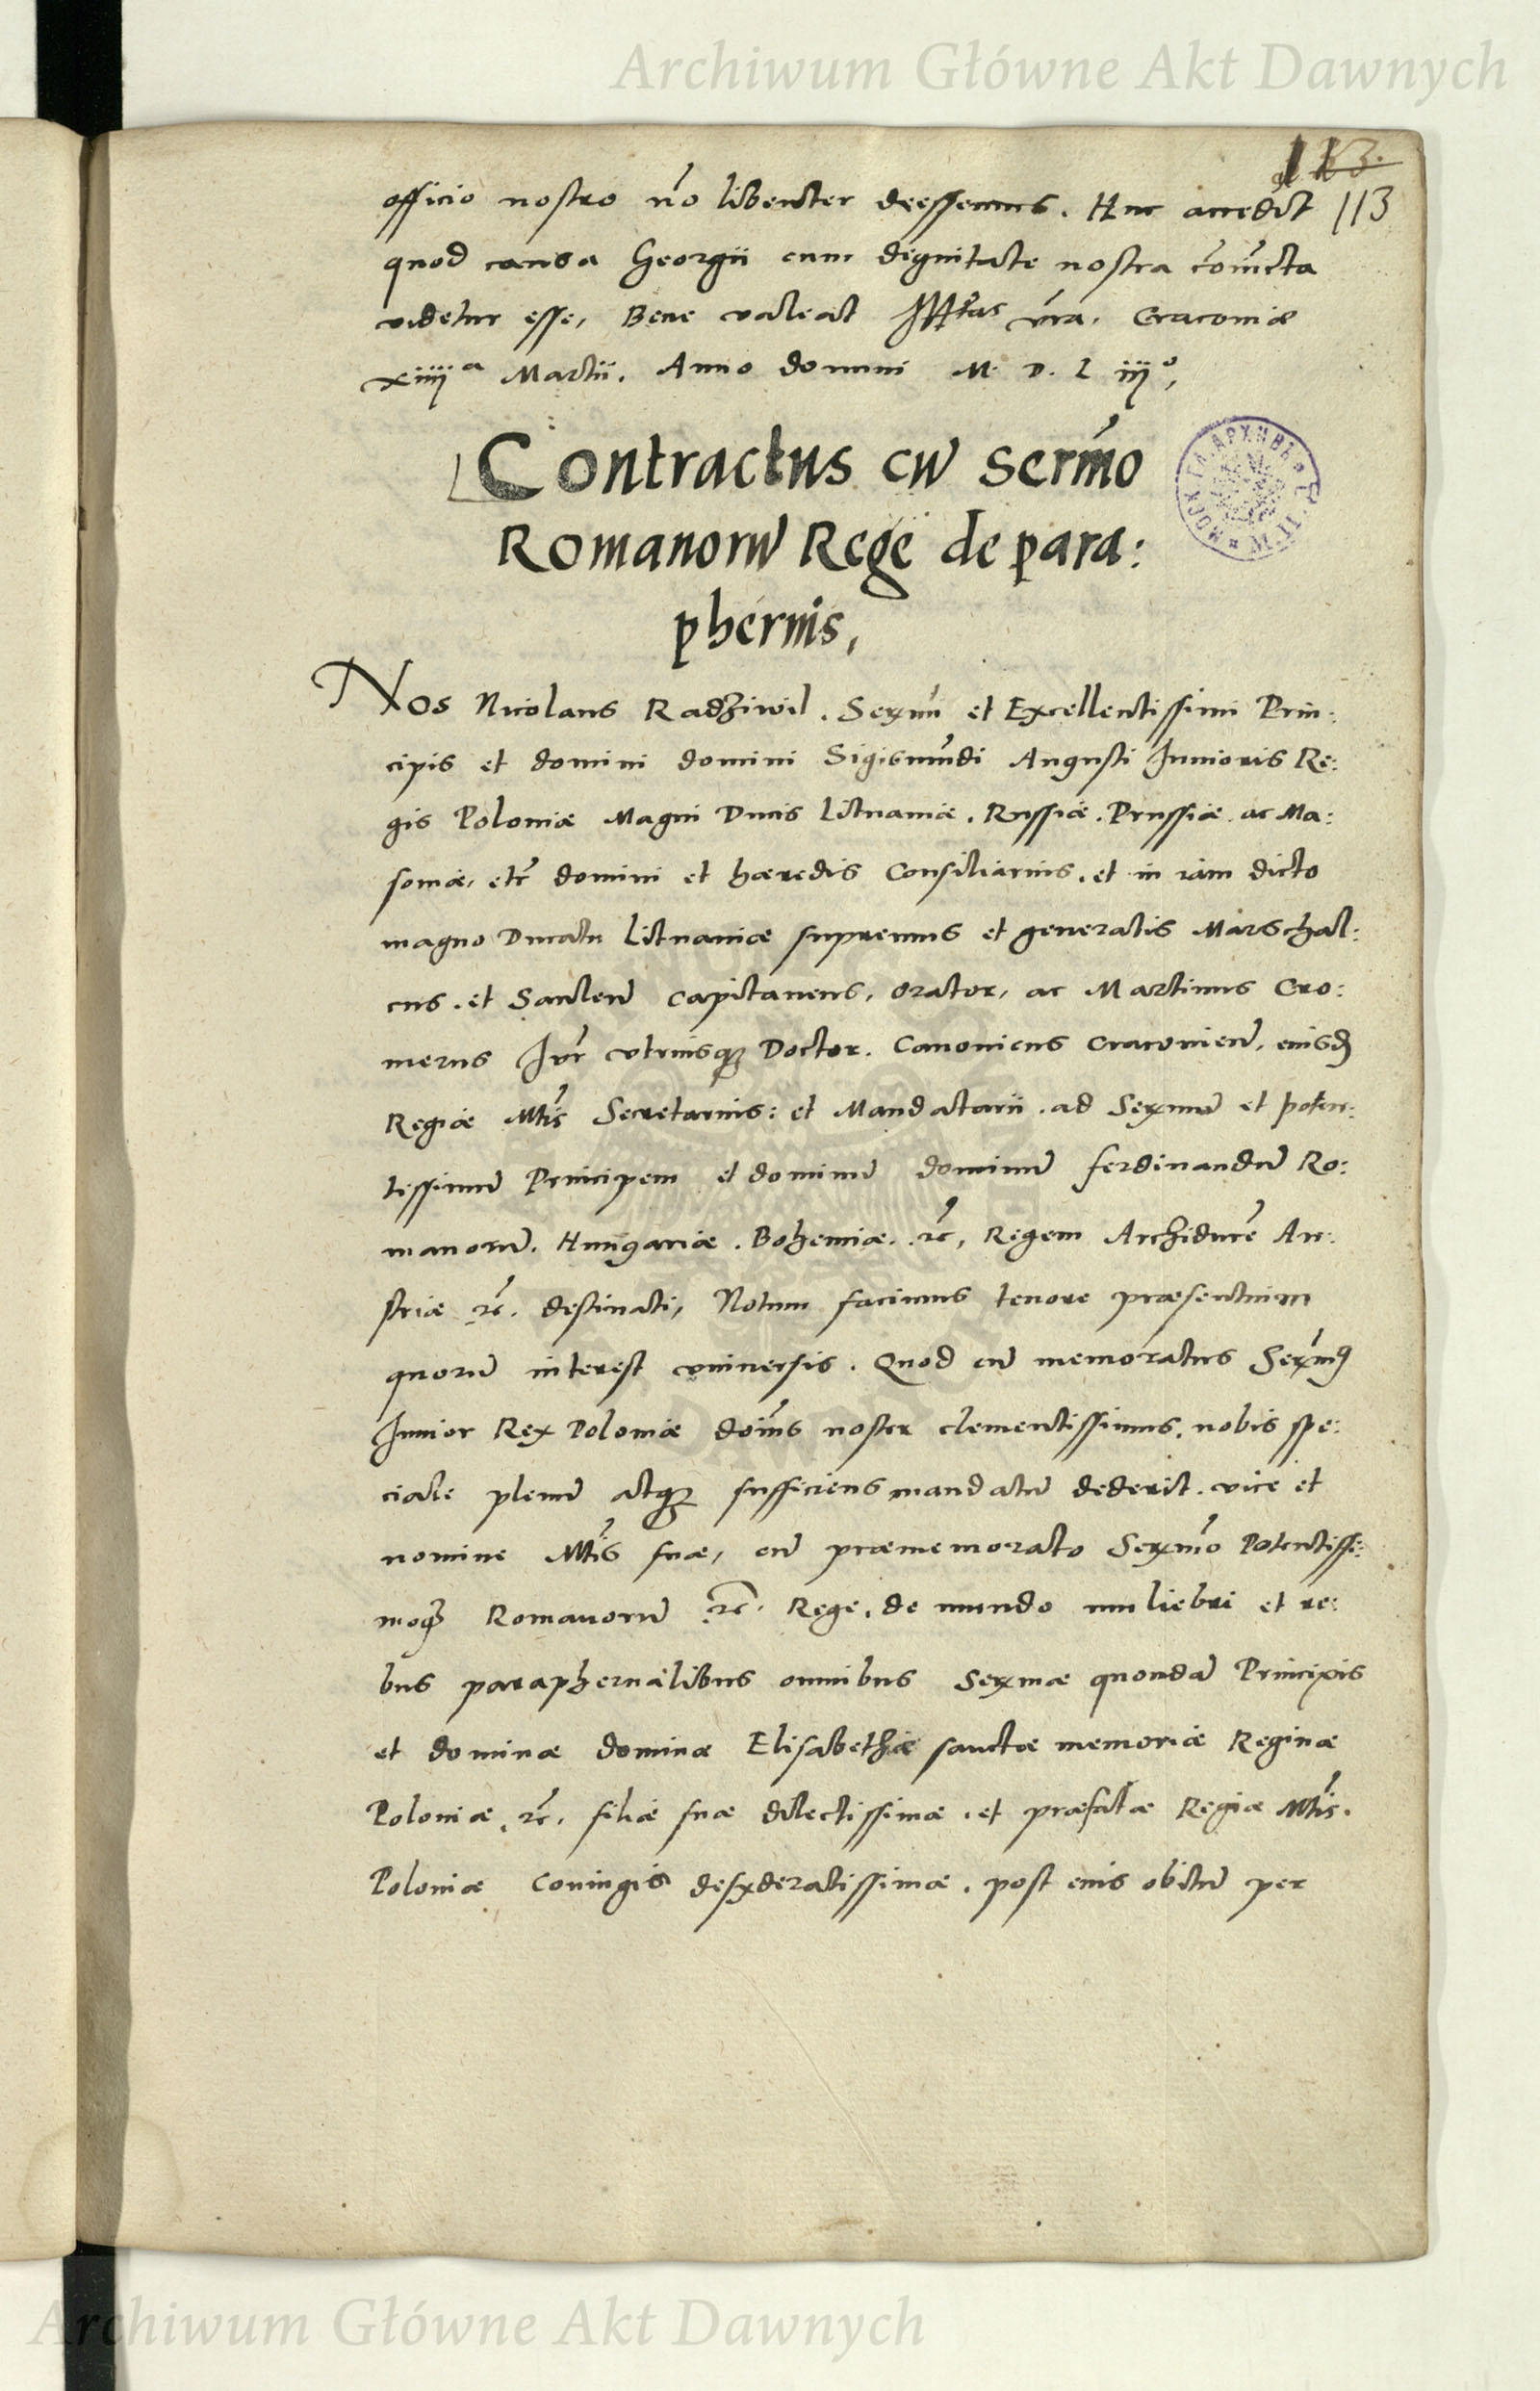 Archiwum Główne Akt Dawnych
113
officio nostro nō libenter deessemus. Huc accedit
quod causa Georgii cum dignitate nostra cōiūcta
videtur esse, Bene valeat vra. Cracoviæ
xiiij a Martii. Anno domini M. D. L iijo,
Contractus cū Sermō
Romanorū Rege de para:
phernis,
Nos Nicolaus Radziwil. Sermi et Excellentissimi Prin:
cipis et domini domini Sigismūdi Augusti Junioris Re:
gis Poloniæ Magni Ducis Lituaniæ. Russiæ. Prussiæ. ac Ma:
soviæ, etc̄ domini et hæredis Consiliarius. et in iam dicto
magno Ducatu Lituaniæ supremus et generalis Marschal:
cus. et Savlen̄ Capitaneus, orator, ac Martinus Cro:
merus Jur̄ vtriusqȝ Doctor. Canonicus Cracovien̄. eiusd
Regiæ Mtis Secretarius: et Mandatarii. ad Sermū et poten:
tissimū Principem et dominū dominū ferdinandū Ro:
manorū. Hungariæ. Bohemiæ. ꝛc̄, Regem Archiducē Au:
striæ ꝛc̄. destinati, Notum facimus tenore præsentium
quorū interest vniuersis. Quod cū memoratus Sermꝰ
Junior Rex Poloniæ doīns noster clementissimus. nobis spe:
ciale plenū atqȝ sufficiens mandatū dederit. vice et
nomine Mtis suæ, cū præmemorato Sermō Potentissi:
moqȝ Romanorū ꝛc̄. Rege. de mundo muliebri et re:
bus paraphernalibus omnibus Sermæ quondā Principis
et dominæ dominæ Elisabethæ sanctæ memoriæ Reginæ
Poloniæ ꝛc̄. filiæ suæ dilectissimæ. et præfatæ Regiæ Mtis.
Poloniæ Coniugis desyderatissimæ. post eius obitū per
Archiwum Główne Akt Dawnych